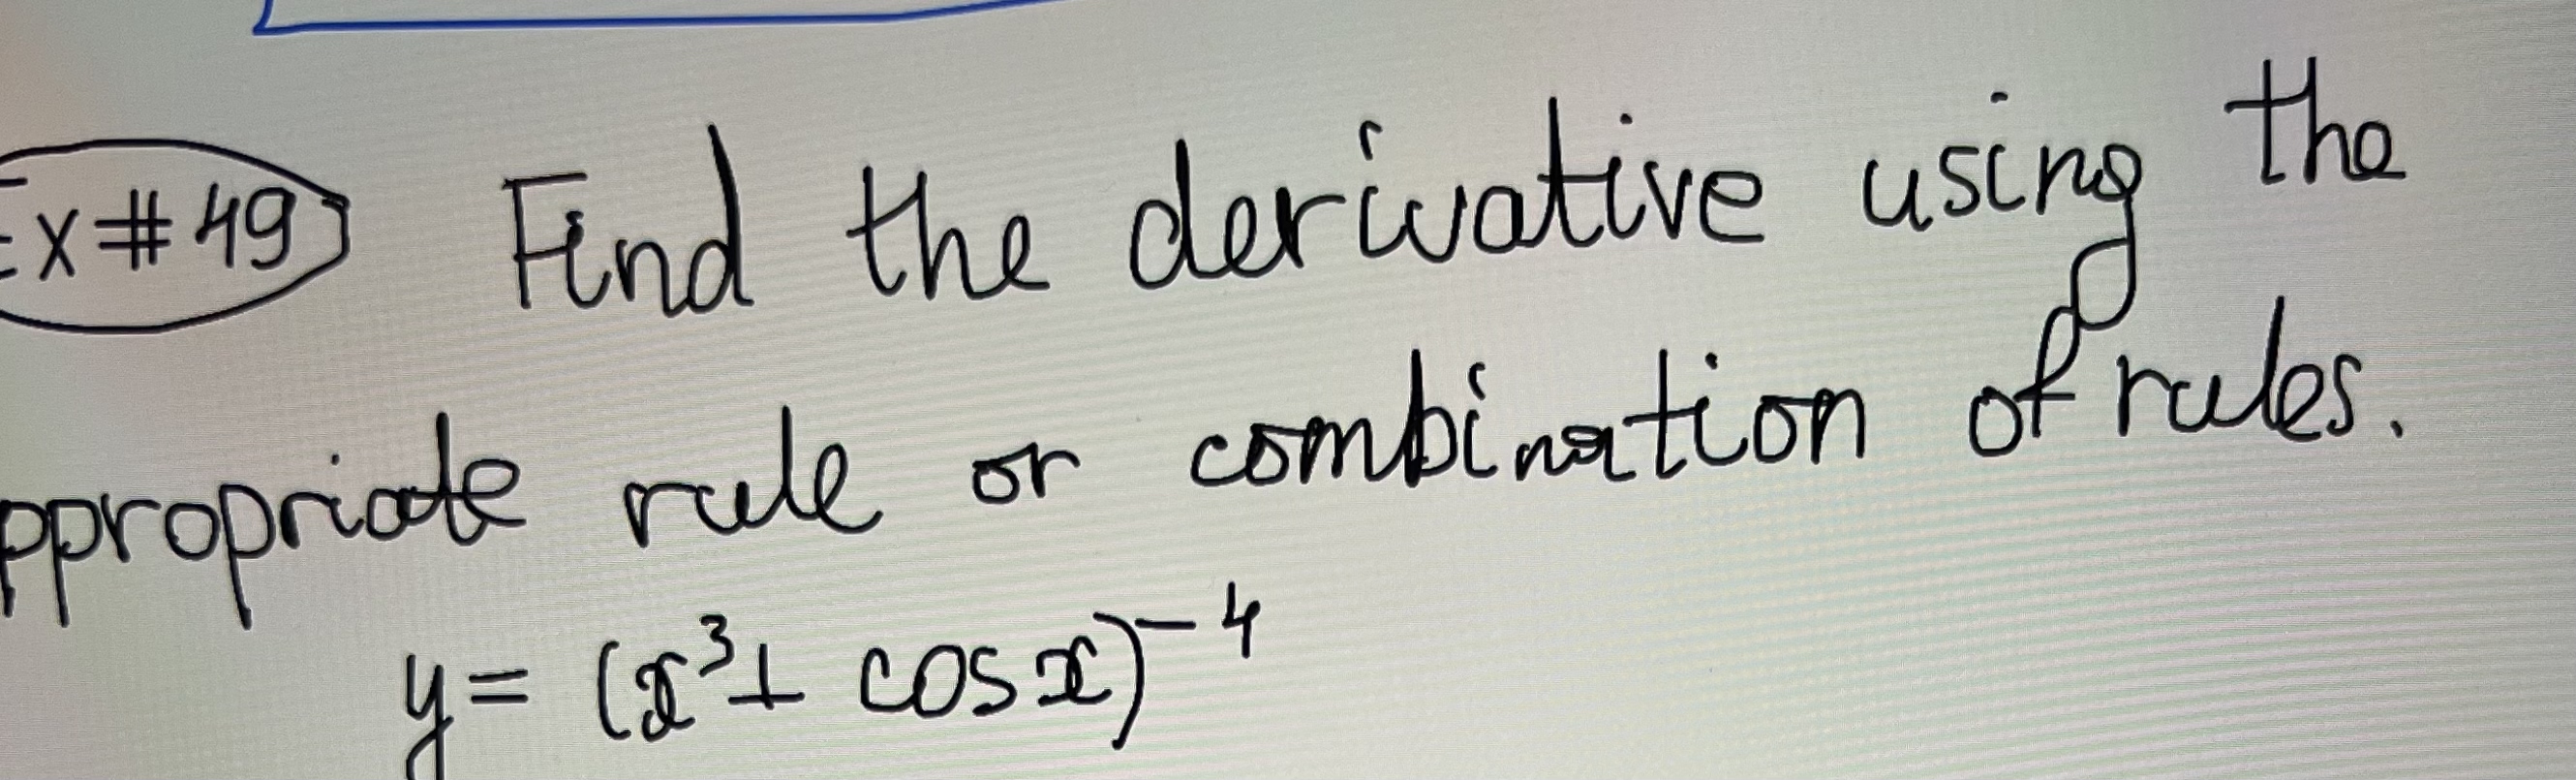 Ex#49 Find the derivative using the
ppropriate rule or combination of rules.
y = (x³+ cos x)⁻⁴